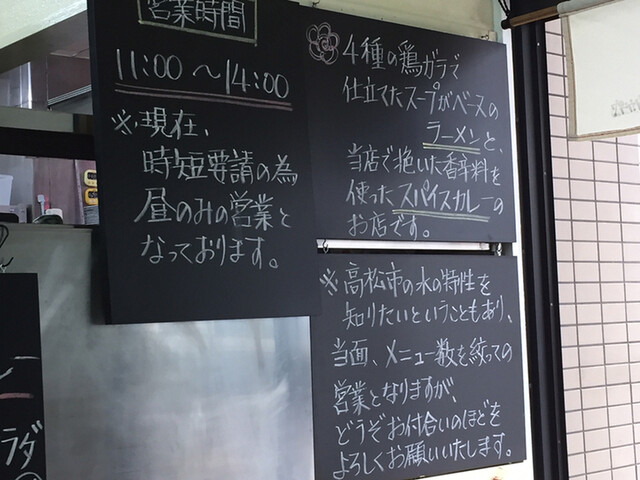 営業時間
11:00～14:00
※現在、
時短要請の為
昼のみの営業と
なっております。
4種の鶏ガラで
仕立てたスープがベースの
ラーメンと、
当店で挽いた香辛料を
使ったスパイスカレーの
お店です。
※高松市の水の特性を
知りたいということもあり、
当面、メニュー数を絞っての
営業となりますが、
どうぞお付合いのほどを
よろしくお願いいたします。
ラダ